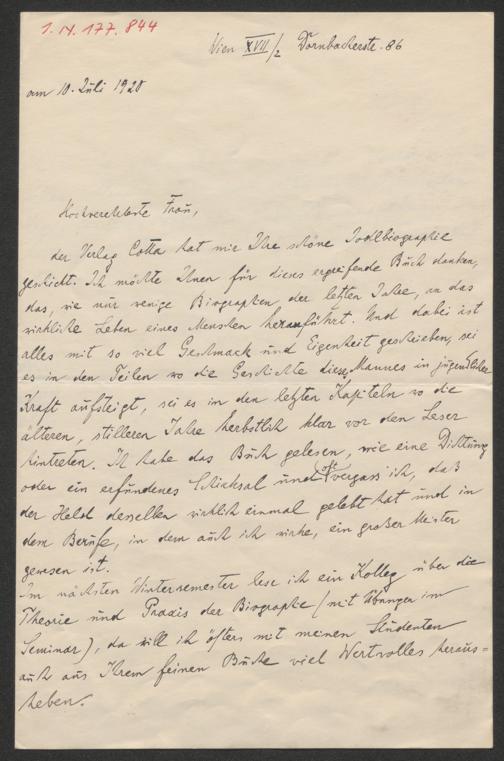 1. IV. 177. 844
Wien XVII/2 Dornbacherstr. 86
am 10. Juli 1920
Hochverehrteste Frau,
der Verlag Cotta hat mir Ihre schöne Jodlbiographie
geschickt. Ich möchte Ihnen für dieses ergreifende Buch danken,
das, wie nur wenige Biographien, der letzten Jahre, an das
wirkliche Leben eines Menschen heranführt. Und dabei ist
alles mit so viel Geschmack und Eigenheit geschrieben, sei
es in den Teilen wo die Geschichte dieses Mannes in jugendlicher
Kraft aufsteigt, sei es in den letzten Kapiteln wo die
älteren, stilleren Jahre herbstlich klar vor den Leser
hintreten. Ich habe das Buch gelesen, wie eine Dichtung
oder ein erfundenes Schicksal und oft vergass ich, daß
der Held desselben wirklich einmal gelebt hat und in
dem Berufe, in dem auch ich wirke, ein großer Meister
gewesen ist.
Im nächsten Wintersemester lese ich ein Kolleg über die
Theorie und Praxis der Biographie (mit Übungen im
Seminar), da will ich öfters mit meinen Studenten
auch aus Ihrem feinen Buche viel Wertvolles heraus=
heben.